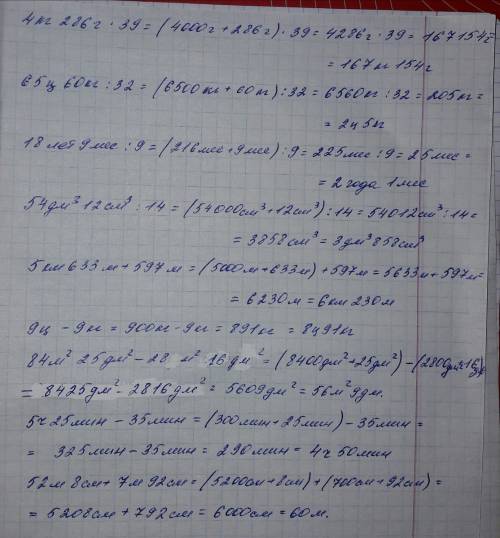 4кг 286г · 39 = (4000г + 286г) · 39 = 4286г · 39 = 167154г
= 167кг 154г
65ц 60кг : 32 = (6500кг + 60кг) : 32 = 6560кг : 32 = 205кг =
= 2ц 5кг
18 лет 9мес : 9 = (216мес + 9мес) : 9 = 225мес : 9 = 25мес =
= 2 года 1мес
54дм³ 12см³ : 14 = (54000см³ + 12см³) : 14 = 54012см³ : 14 =
= 3858см³ = 3дм³ 858см³
5км 633м + 597м = (5000м + 633м) + 597м = 5633м + 597м =
= 6230м = 6км 230м
9ц - 9кг = 900кг - 9кг = 891кг = 8ц 91кг
84м² 25дм² - 28 м² 16дм² = (8400дм² + 25дм²) - (2800дм² + 16дм²)
= 8425дм² - 2816дм² = 5609дм² = 56м² 9дм.
5ч 25мин - 35мин = (300мин + 25мин) - 35мин =
= 325мин - 35мин = 290мин = 4ч 50мин
52м 8см + 7м 92см = (5200см + 8см) + (700см + 92см) =
= 5208см + 792см = 6000см = 60м.